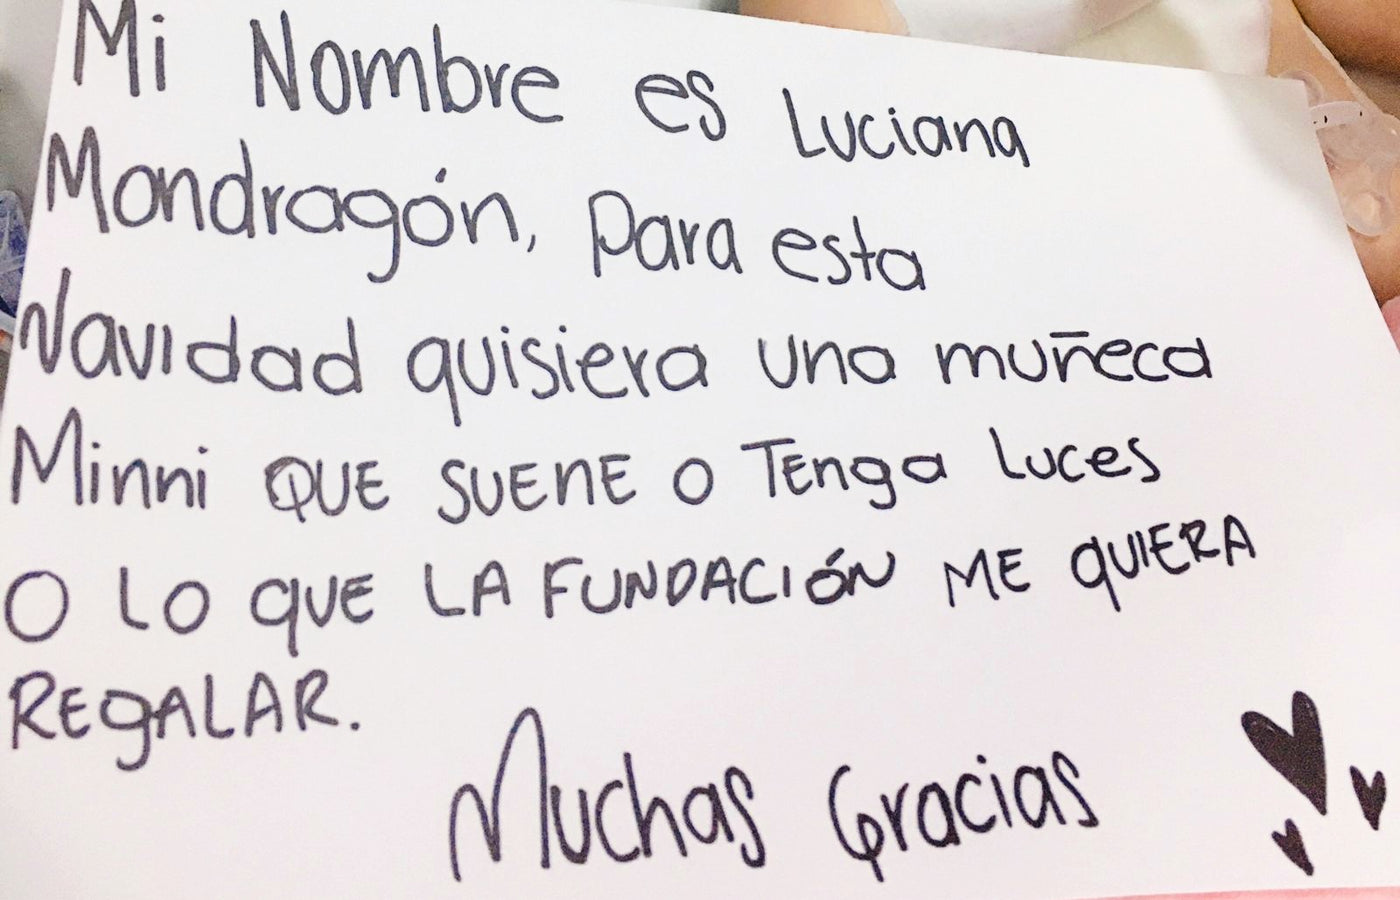 Mi Nombre es Luciana
Mondragón, Para esta
Navidad quisiera una muñeca
Minni QUE SUENE O TEnga Luces
O LO QUE LA FUNDACIÓN ME QUIERA
REgALAR.
Muchas Gracias